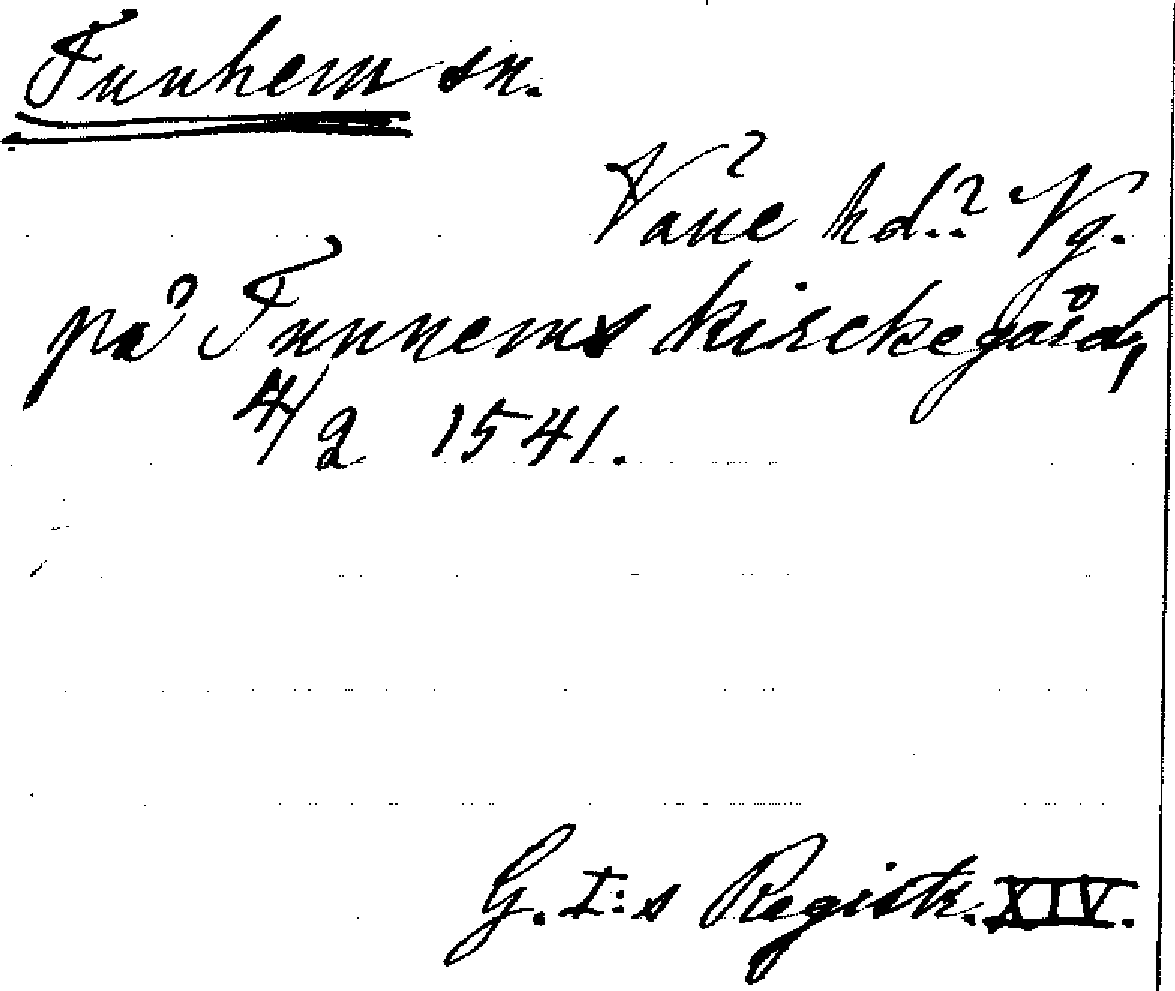 Funhem sn.
Väne hd.? Vg.
på Funnems kirckegård,
4/2 1541.
G. I:s Registr. XIV.